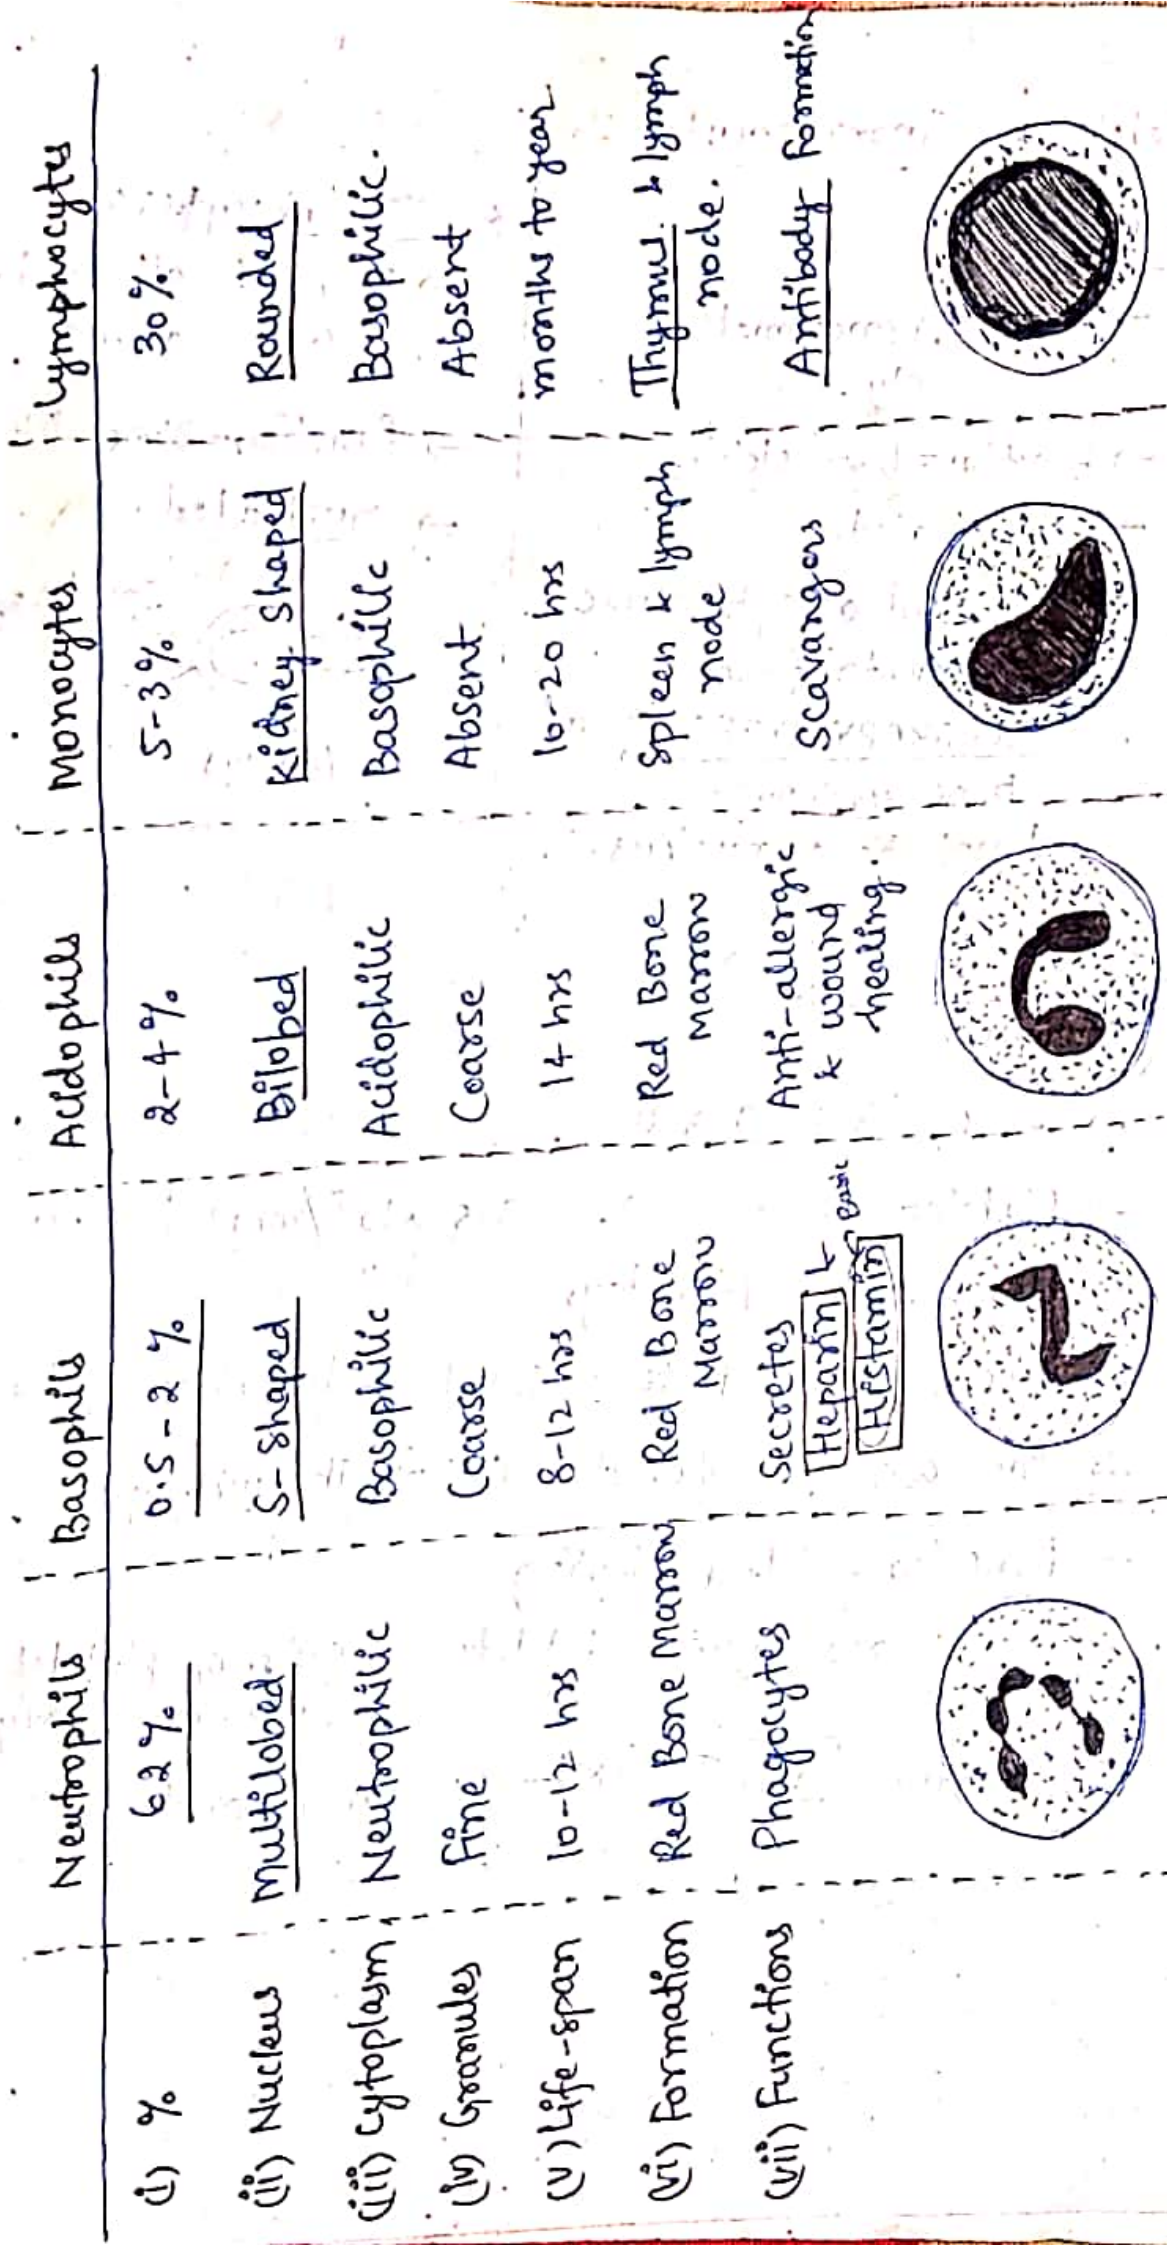 Neutrophils Basophils Acidophils Monocytes Lymphocytes
(i) % 62% 0.5-2% 2-4% 5-3% 30%
(ii) Nucleus Multilobed S-Shaped Bilobed Kidney shaped Rounded
(iii) Cytoplasm Neutrophilic Basophilic Acidophilic Basophilic Basophilic.
(iv) Granules Fine Coarse Coarse Absent Absent
(v) Life-span 10-12 hrs 8-12 hrs 14 hrs 10-20 hrs months to year
(vi) Formation Red Bone Marrow Red Bone Red Bone Spleen & lymph Thymus & lymph
Marrow Marrow node node.
(vii) Functions Phagocytes Secretes Anti-allergic Scavangors Antibody Formation
Heparin & & wound
Histamin healing.